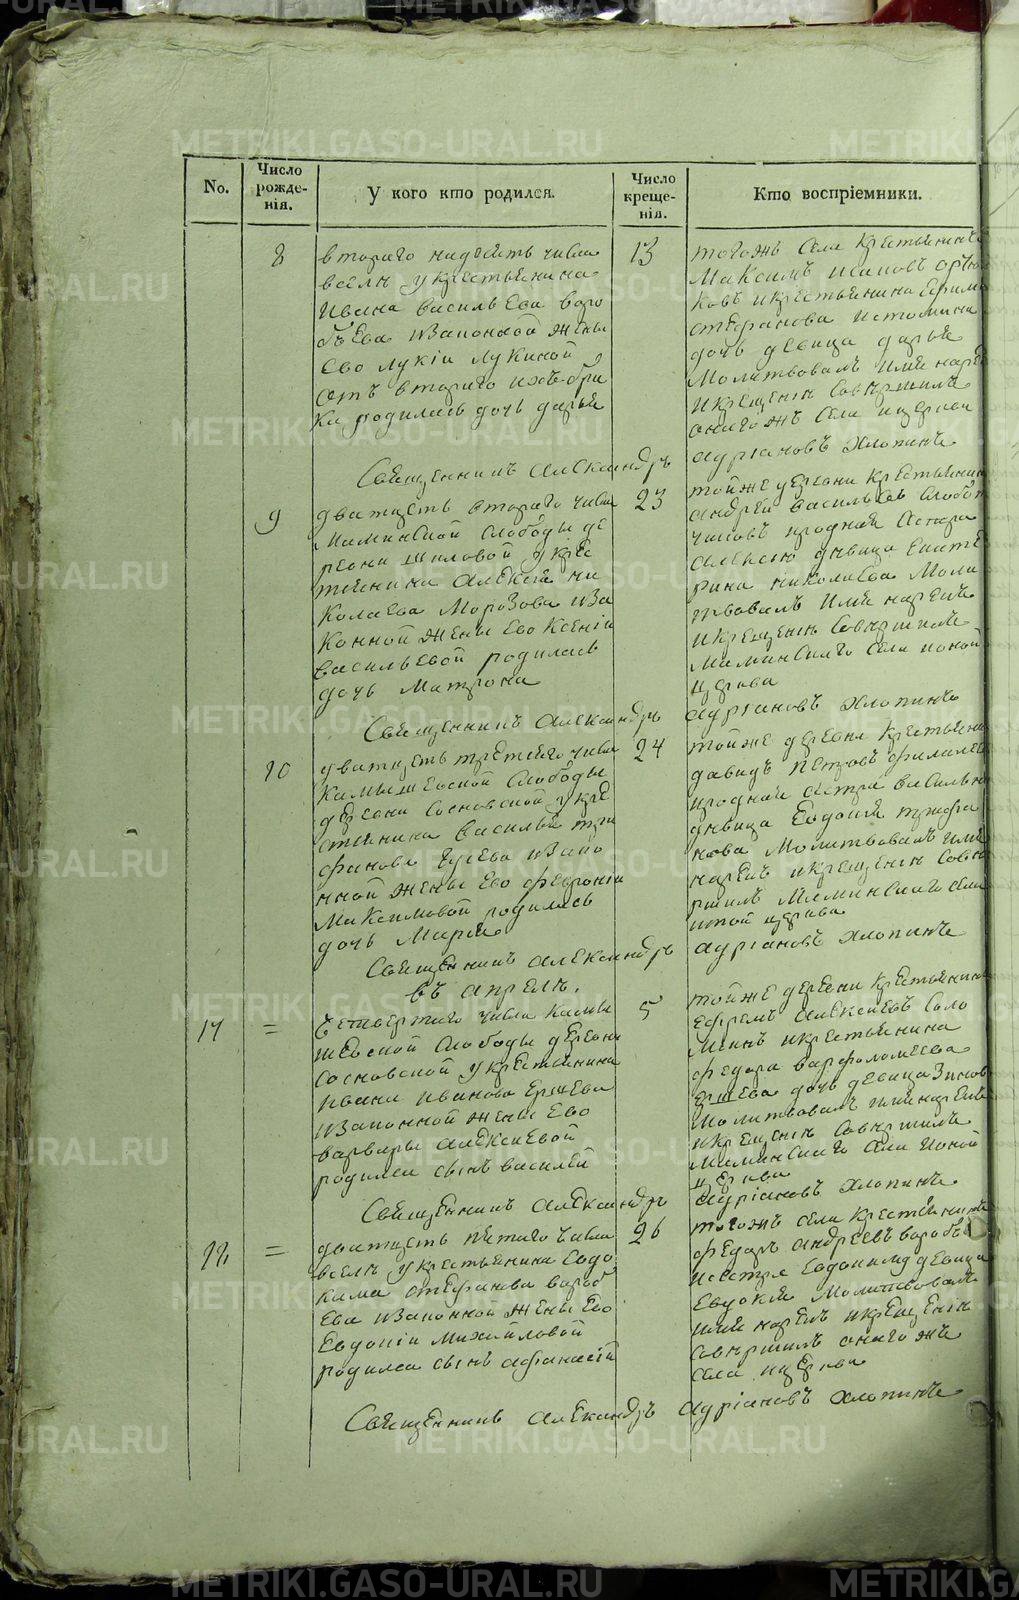 METRIKI.GASO-URAL.RU
No.
Число рожде-нія.
У кого кто родился.
Число креще-нія.
Кто воспріемники.
8
втораго надесять числа
вселѣ укрестьянина
Ивана васильева воро
бьева изаконной жены
Ево лукіи лукиной
отъ втораго ихъ бра
ка родилась дочь дарья
13
тогожъ села крестьянинъ
Максимъ
ковъ икрестьянина Ефима
стефанова истомина
дочь девица дарья
Молитвовалъ имя нарекъ
икрещеніи совершилъ
онагожъ села
Священникъ александръ адріановъ хлопинъ
9
дватцеть втораго числа
Маминской слободы де
ревни шиловой укрес
тьянина алексея ни
колаева Морозова иза
конной жены Ево ксеніи
васильевой родилась
дочь Матрона
23
тойже деревни крестьянинъ
андрей васильевъ слобот
чиковъ иродная сестра
алексею девица екате
рина николаева Моли
твовалъ имя нарекъ
икрещеніи совершилъ
Маминскаго села
церкви
Священникъ александръ адріановъ хлопинъ
10
дватцеть третьяго числа
камышевской слободы
деревни сосновской укре
стьянина василья три
фанова гусева изако
нной жены Ево февроніи
Максимовой родилась
дочь Марья
24
тойже деревни крестьянинъ
давидъ петровъ
иродная сестра василью
девица Евдокия трифа
нова Молитвовалъ имя
нарекъ икрещеніи сове
ршилъ Маминскаго села
церкви
Священникъ александръ адріановъ хлопинъ
въ апрелѣ.
11 =
Четвертаго числа камы
шевской слободы деревни
сосновской укрестьянина
ивана иванова Ершева
изаконной жены Ево
варвары алексеевой
родился сынъ василей
5
тойже деревни крестьянинъ
Ефремъ алексеевъ соло
икрестьянина
федора варфоломеева
Ершева дочь девица
Молитвовалъ имя нарекъ
икрещеніи совершилъ
Маминскаго села
церкви
Священникъ александръ адріановъ хлопинъ
12 =
дватцеть пятаго числа
вселѣ укрестьянина Евдо
кима стефанова вороб
Ева изаконной жены Ево
Евдокіи михайловой
родился сынъ афанасій
26
тогожъ села крестьянинъ
федоръ андреевъ воробьевъ
исестра Евдокиму девица
Евдокия Молитвовалъ
имя нарекъ икрещеніи
совершилъ онагожъ
села церкви
Священникъ александръ адріановъ хлопинъ